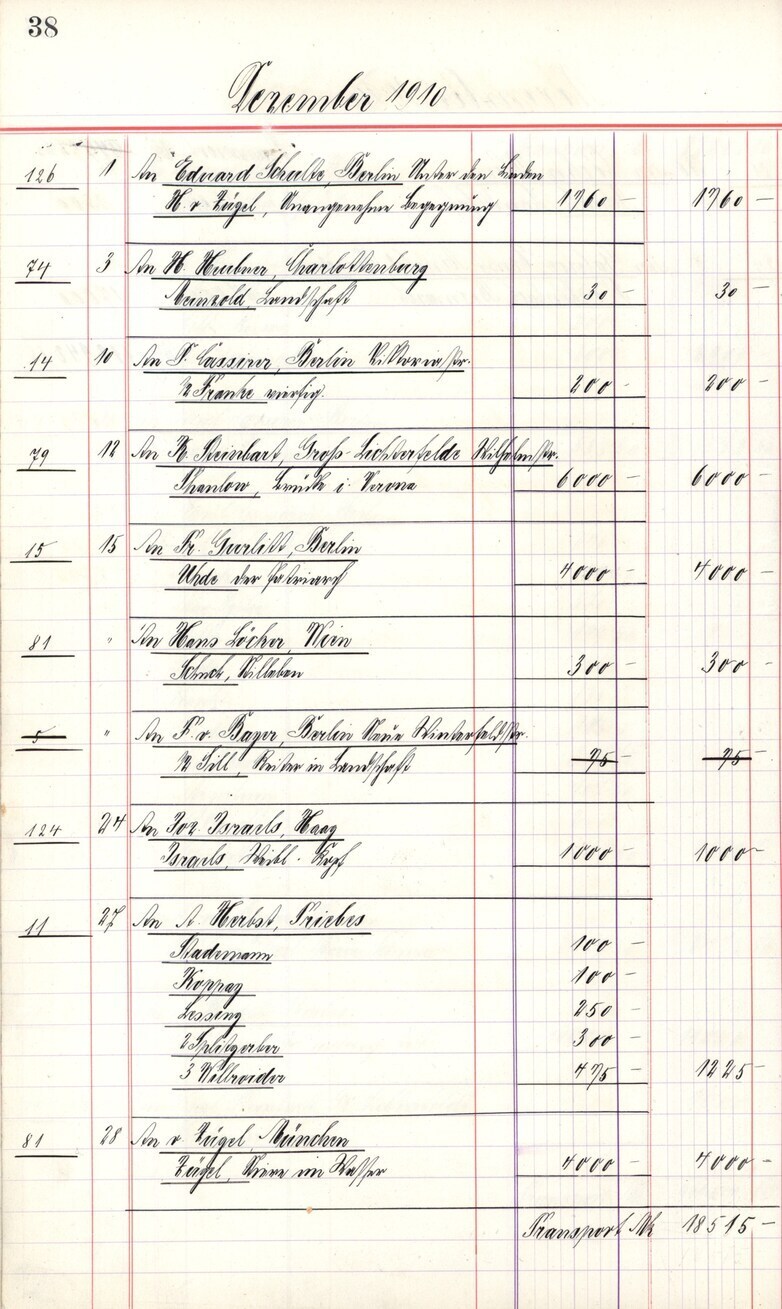 38
Dezember 1910
126 1 An Eduard Schulte, Berlin Unter den Linden
H. v. Zügel, Unangenehme Begegnung 1760 – 1760 –
74 3 An H. Heubner, Charlottenburg
Meinzold, Landschaft 30 – 30 –
14 10 An P. Cassirer, Berlin Viktoriastr.
½ Franke 200 – 200 –
79 12 An K. Steinbart, Groß-Lichterfelde Wilhelmstr.
Thaulow, Brücke i. Verona 6000 – 6000 –
15 15 An Fr. Gurlitt, Berlin
Uhde der Patriarch 4000 – 4000 –
81 " An Hans Löcker, Wien
Schuch, Stilleben 300 – 300 –
5 " An F. v. Bayer, Berlin Neue Winterfeldstr.
½ Sill, Reiter in Landschaft 75 – 75 –
124 24 An Joz. Israels, Haag
Israels, Weibl. Kopf 1000 – 1000 –
11 27 An A. Herbst, Triebes
Stademann 100 –
Koppay 100 –
Lessing 250 –
2 Splitgerber 300 –
3 Willroider 475 – 1225 –
81 28 An v. Zügel, München
Zügel, Stiere im Wasser 4000 – 4000 –
Transport Mk 18515 –